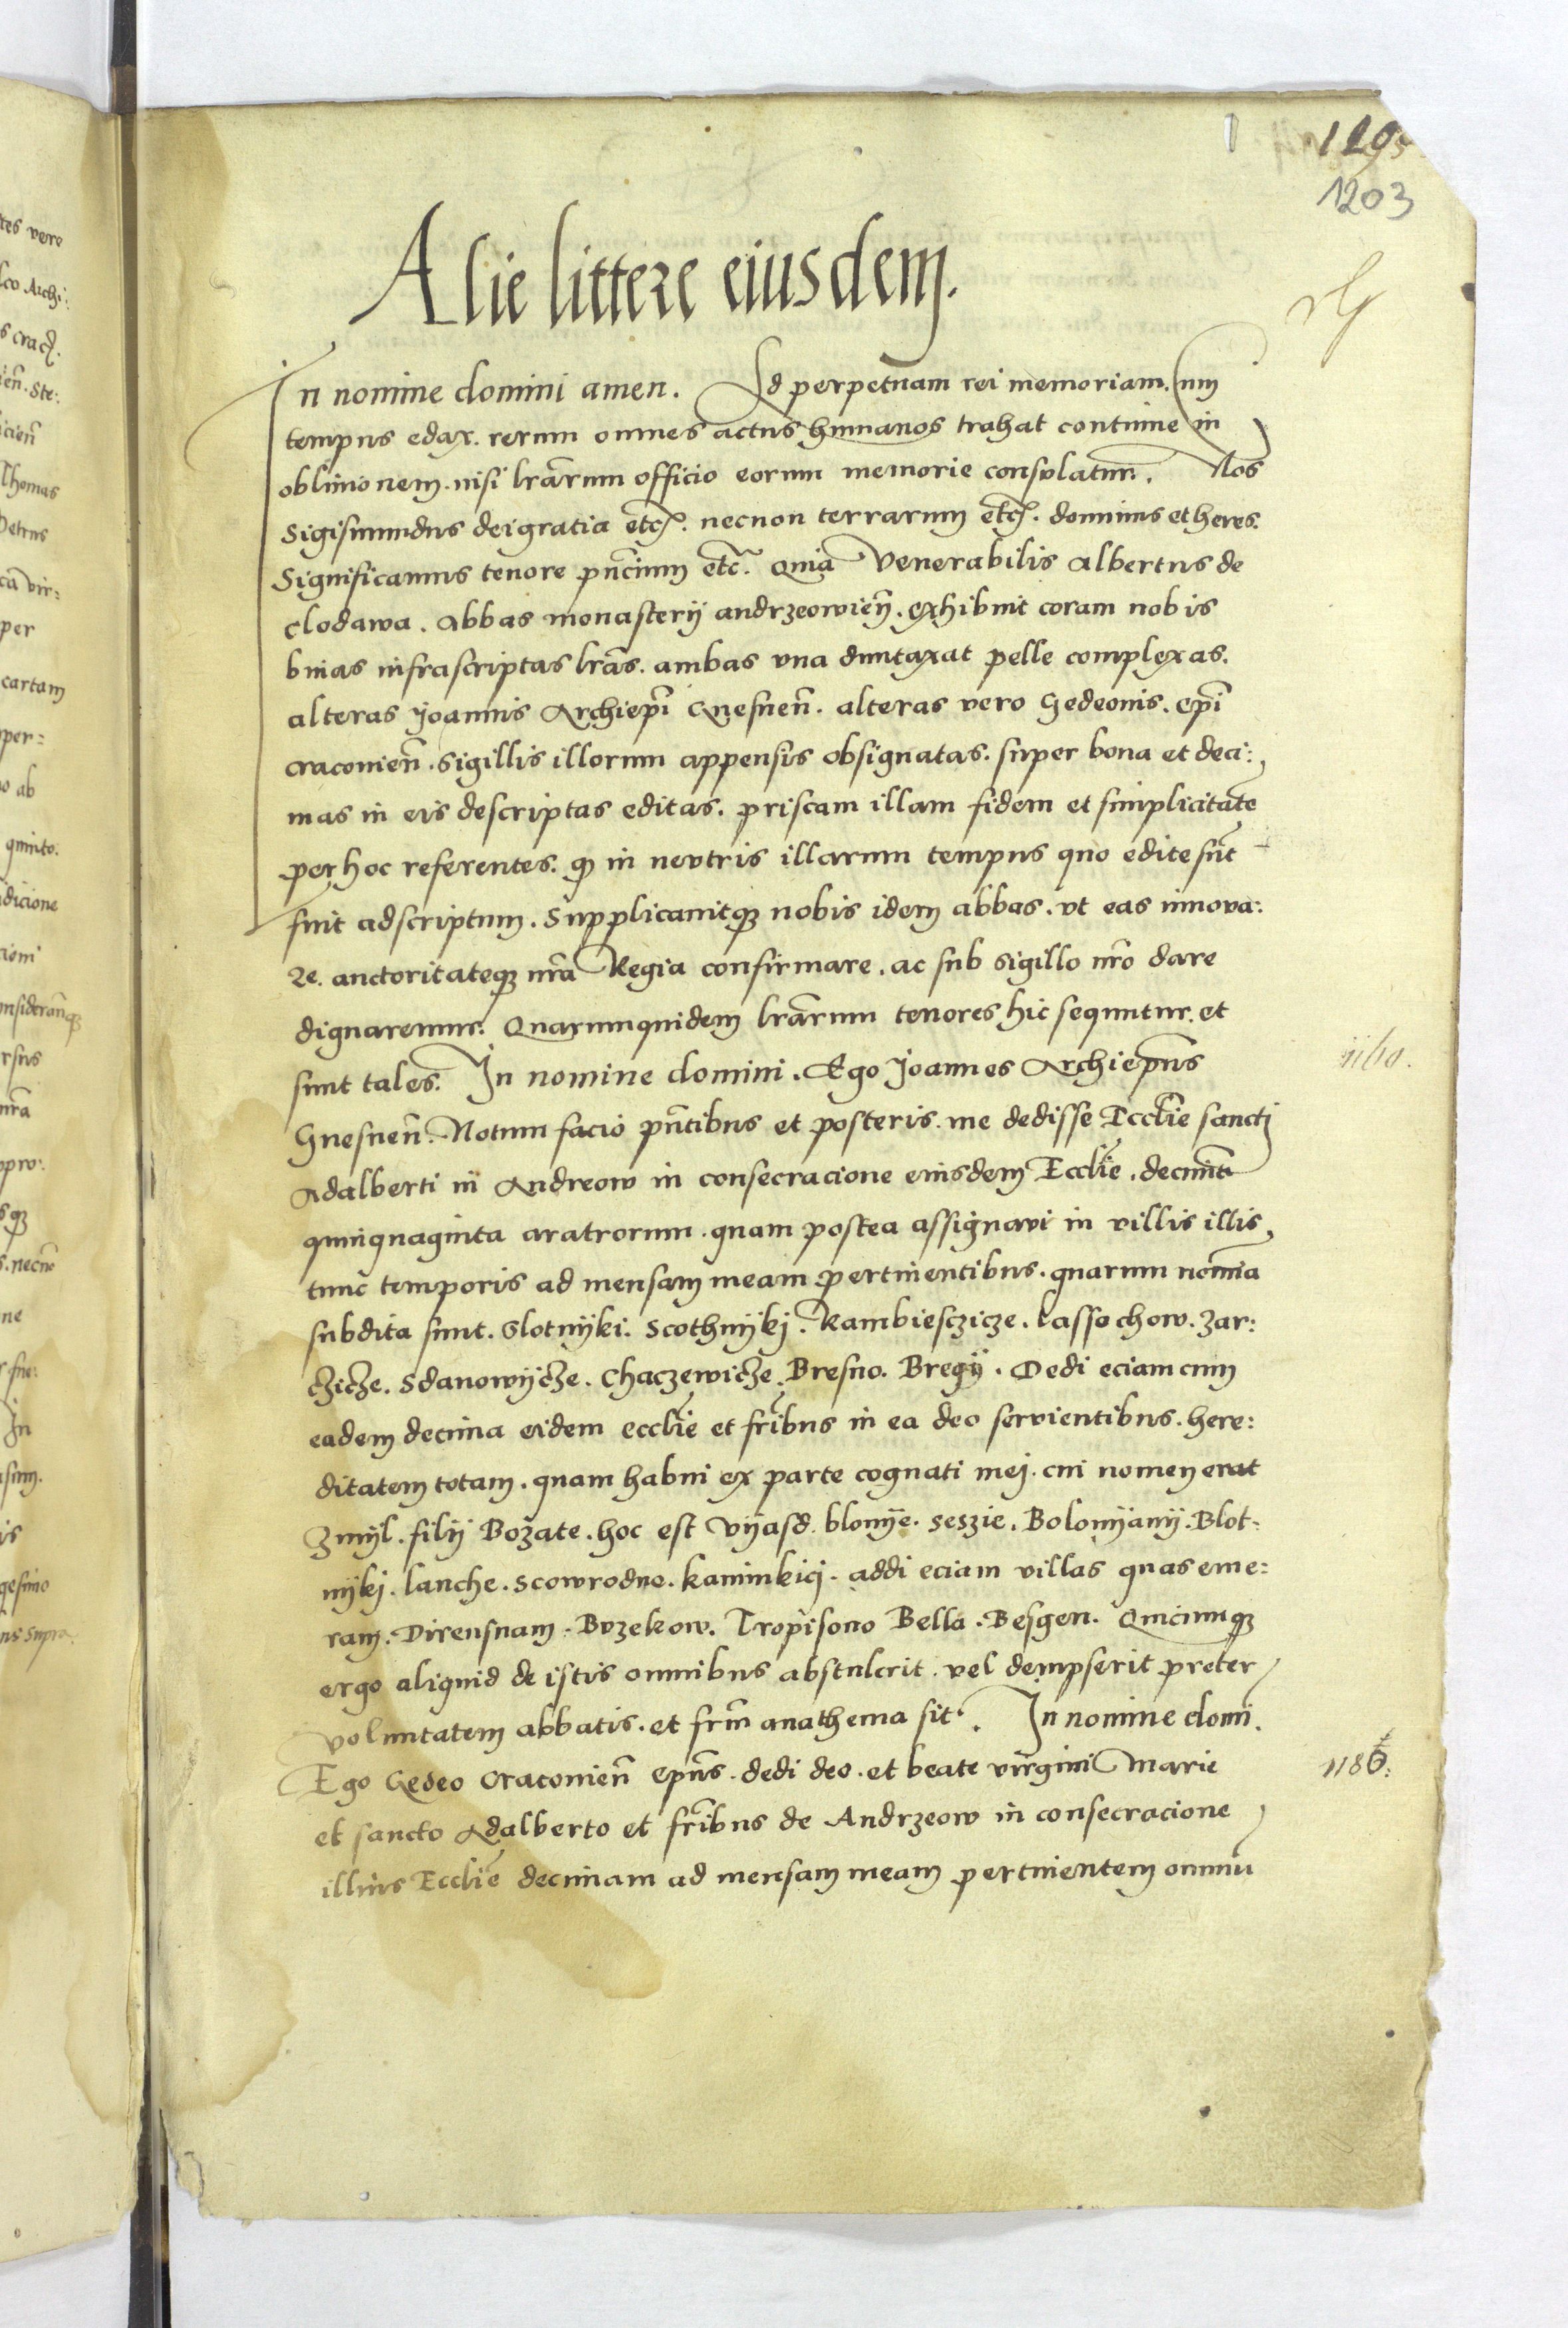 1203
Alie littere eiusdem.
In nomine domini amen. Ad perpetuam rei memoriam. Cum
tempus edax. rerum omnes actus humanos trahat continue in
obliuionem. nisi lrãrum officio eorum memorie consulatur. Nos
Sigismundus dei gratia etc. necnon terrarum etc. dominus et heres.
Significamus tenore pñcium etc. Quia Venerabilis Albertus de
Clodawa. Abbas monasterij andrzeowieñ. exhibuit coram nobis
binas infrascriptas lrãs. ambas vna duntaxat pelle complexas.
alteras Joannis Archiepĩ Gnesneñ. alteras vero Gedeonis. epĩ
Cracouieñ. sigillis illorum appensis obsignatas. super bona et deci:
mas in eis descriptas editas. priscam illam fidem et simplicitatẽ
per hoc referentes. q₃ in neutris illarum tempus quo edite sũt
fuit adscriptum. Supplicauitq₃ nobis idem abbas. vt eas innoua:
re. auctoritateq₃ nrã Regia confirmare. ac sub sigillo nrõ dare
dignaremur. Quarumquidem lrãrum tenores hic sequntur. et
sunt tales. In nomine domini. Ego Joannes Archiepũs
Gnesneñ. Notum facio pñtibus et posteris. me dedisse Ecclĩe sancti
Adalberti in Andreow in consecracione eiusdem Ecclĩe. decimã
quinquaginta aratrorum. quam postea assignaui in villis illis
tunc temporis ad mensam meam pertinentibus. quarum nomĩa
subdita sunt. Slotnÿki. Scothnÿkj. Rambiesczicze. Lassochow. Zar:
czicze. Sdanowÿcze. Chaczewicze. Bresno. Bregÿ. Dedi eciam cum
eadem decima eidem ecclĩe et frĩbus in ea deo seruientibus. here:
ditatem totam. quam habui ex parte cognati mei. cui nomen erat
Zmÿl. filij Bożate. hoc est Vÿasd. blonÿe. seszie. Bolomÿanÿ. Blot:
nÿkj. lanche. scowrodno. kaminkicj. addi eciam villas quas eme:
ram. Dirensnam. Buzekow. Tropisono Bella. Besgen. Quicumq₃
ergo aliquid de istis omnibus abstulerit. vel dempserit preter
voluntatem abbatis. et frm̃ anathema sit. In nomine domĩ.
Ego Gedeo Cracouieñ epũs. dedi deo. et beate virgini Marie
et sancto Adalberto et frĩbus de Andrzeow in consecracione
illius Ecclĩe decimam ad mensam meam pertinentem omniũ